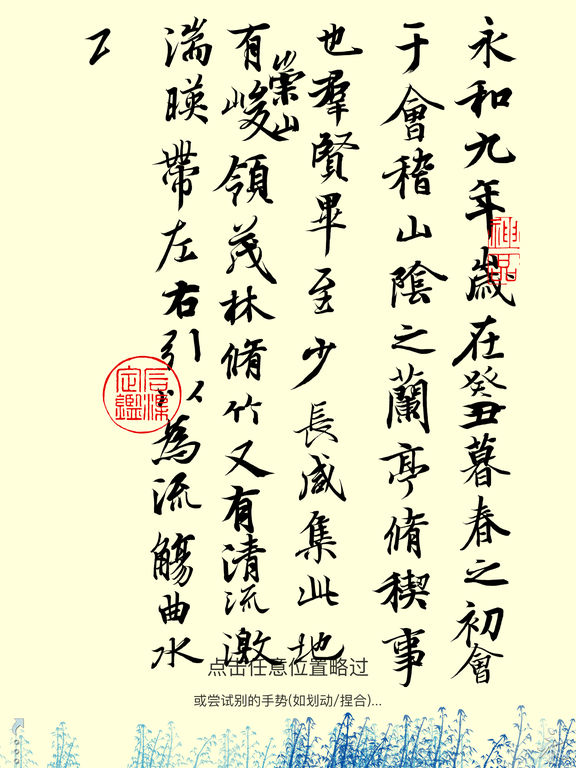 永和九年歲在癸丑暮春之初會
于會稽山陰之蘭亭脩稧事
也羣賢畢至少長咸集此地
有崇山峻領茂林脩竹又有清流激
湍暎帶左右引以為流觴曲水
神品
石渠定鑑
点击任意位置略过
或尝试别的手势(如划动/捏合)...